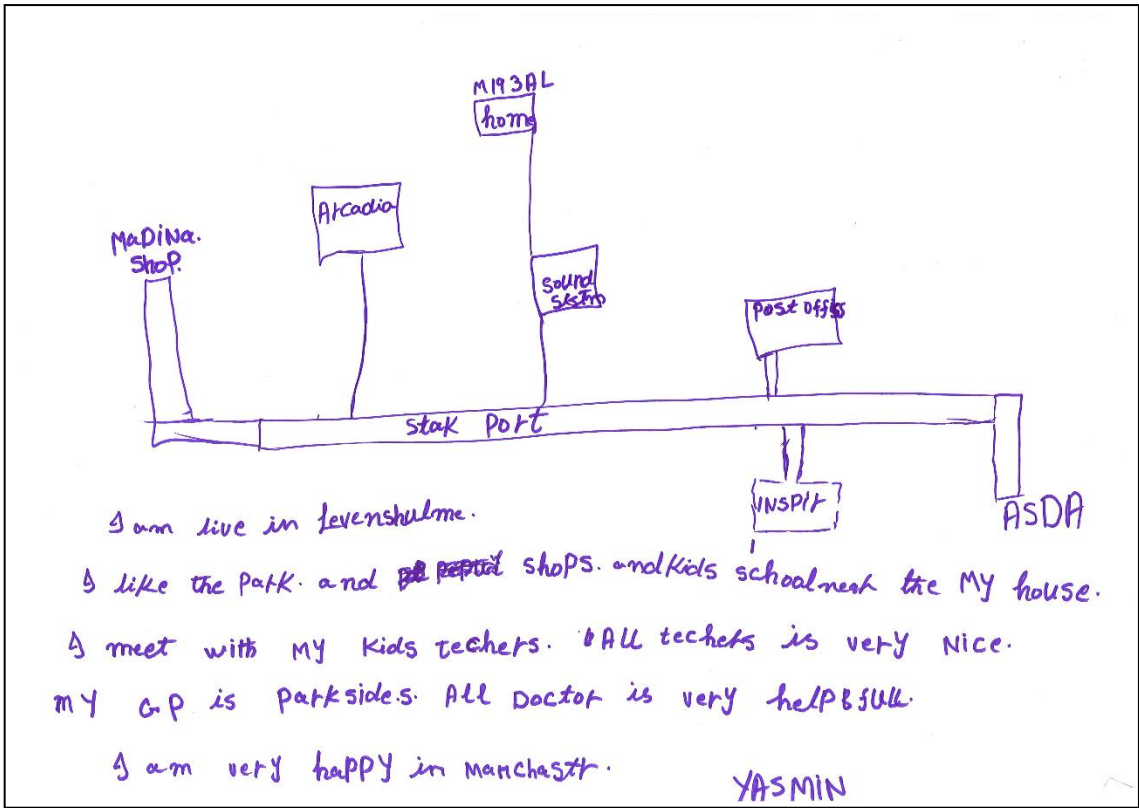 M193AL
home
Arcadia
MaDiNa.
Shop.
Sound
Sistm
Post Offis
Stak Port
INSPIr
ASDA
I am live in Levenshulme.
I like the Park. and shops. and Kids schoal near the My house.
I meet with My Kids techers. All techers is very Nice.
MY GP is Parksides. All Doctor is very helPfull.
I am very haPPy in Manchastr.
YASMIN